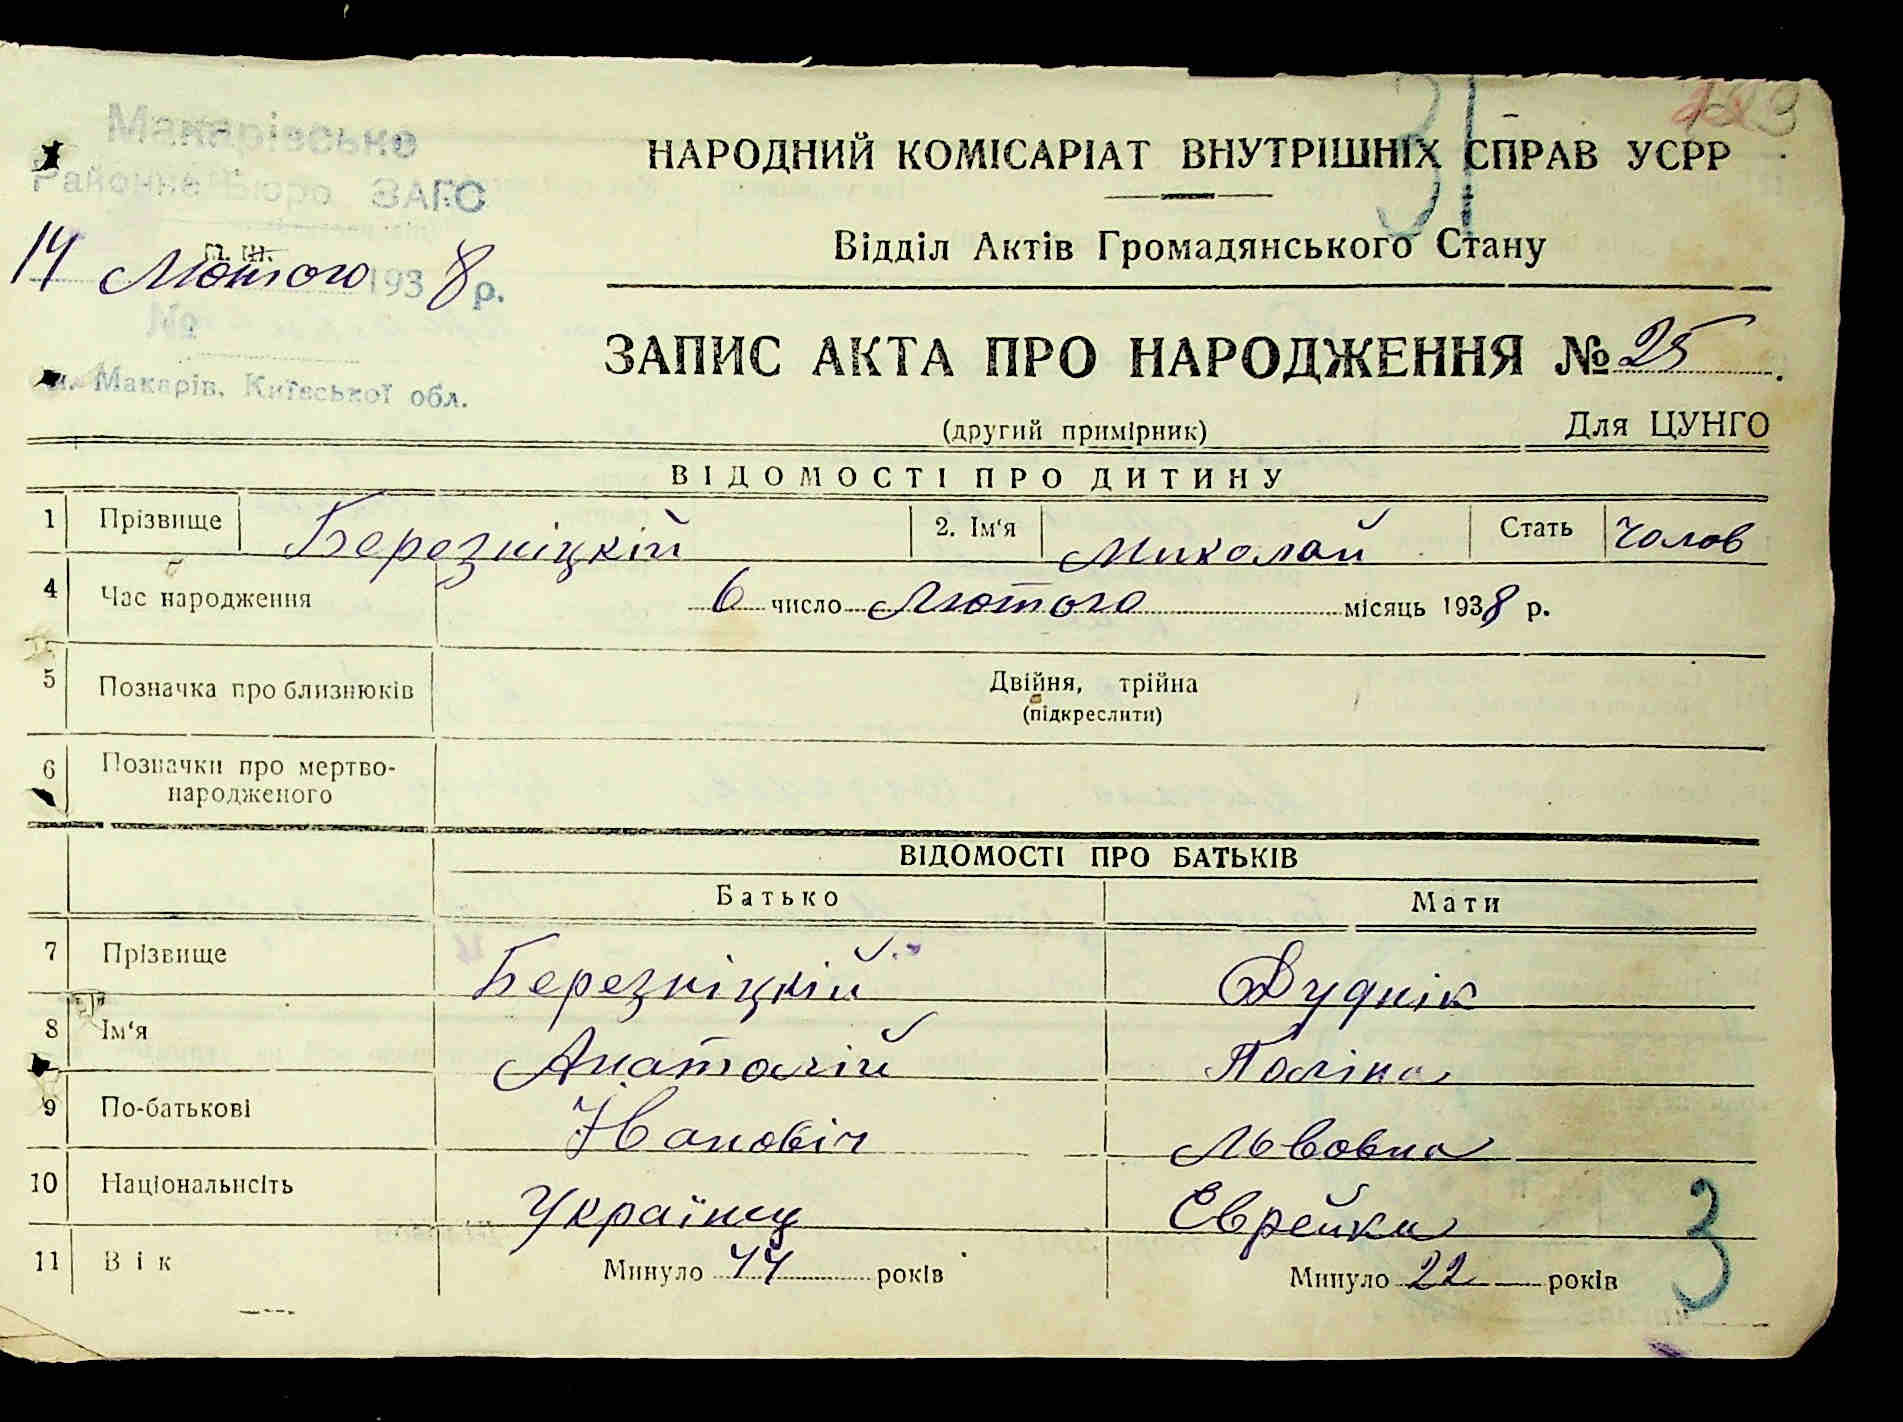 Макарівське
Районне Бюро ЗАГС
14 Лютого 1938 р.
№
м. Макарів, Київської обл.
31
НАРОДНИЙ КОМІСАРІАТ ВНУТРІШНІХ СПРАВ УСРР
Відділ Актів Громадянського Стану
ЗАПИС АКТА ПРО НАРОДЖЕННЯ № 25
(другий примірник)
Для ЦУНГО
ВІДОМОСТІ ПРО ДИТИНУ
1 Прізвище Березніцкій 2. Ім'я Миколай Стать Чолов
4 Час народження 6 число Лютого місяць 1938 р.
5 Позначка про близнюків Двійня, трійна
(підкреслити)
6 Позначки про мертво-
народженого
ВІДОМОСТІ ПРО БАТЬКІВ
Батько Мати
7 Прізвище Березніцкій Дуднік
8 Ім'я Анатолій Поліна
9 По-батькові Івановіч Львовна
10 Національнсіть Українец Еврейка
11 Вік Минуло 44 років Минуло 22 років
3